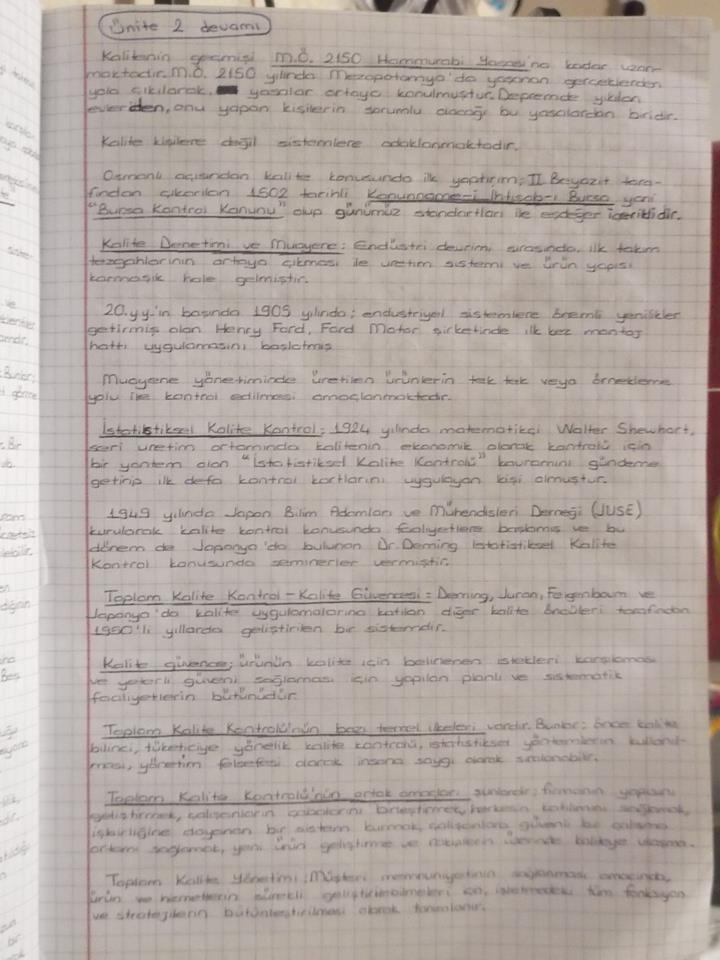 Ünite 2 devamı
Kalitenin geçmişi M.Ö. 2150 Hammurabi Yasası'na kadar uzan-
maktadır. M.Ö. 2150 yılında Mezopotamya'da yaşanan gerçeklerden
yola çıkılarak, yasalar ortaya konulmuştur. Depremde yıkılan
evlerden, onu yapan kişilerin sorumlu olacağı bu yasalardan biridir.
Kalite kişilere değil sistemlere odaklanmaktadır.
Osmanlı açısından kalite konusunda ilk yaptırım; II Beyazıt tara-
fından çıkarılan 1502 tarihli Kanunname-i İhtisab-ı Bursa yani
"Bursa Kontrol Kanunu" olup günümüz standartları ile eşdeğer içeriklidir.
Kalite Denetimi ve Muayene: Endüstri devrimi sırasında, ilk takım
tezgahlarının ortaya çıkması ile üretim sistemi ve ürün yapısı
karmaşık hale gelmiştir.
20.yy.'ın başında 1905 yılında; endüstriyel sistemlere önemli yenilikler
getirmiş olan Henry Ford, Ford Motor şirketinde ilk kez montaj
hattı uygulamasını başlatmış
Muayene yönetiminde üretilen ürünlerin tek tek veya örnekleme
yolu ile kontrol edilmesi amaçlanmaktadır.
İstatistiksel Kalite Kontrol; 1924 yılında matematikçi Walter Shewhart,
seri üretim ortamında kalitenin ekonomik olarak kontrolü için
bir yöntem olan "İstatistiksel Kalite Kontrolü" kavramını gündeme
getirip ilk defa kontrol kartlarını uygulayan kişi olmuştur.
1949 yılında Japon Bilim Adamları ve Mühendisleri Derneği (JUSE)
kurularak kalite kontrol konusunda faaliyetlere başlamış ve bu
dönem de Japonya'da bulunan Dr. Deming İstatistiksel Kalite
Kontrol konusunda seminerler vermiştir.
Toplam Kalite Kontrol - Kalite Güvencesi = Deming, Juran, Feigenbaum ve
Japonya'da kalite uygulamalarına katılan diğer kalite öncüleri tarafından
1950'li yıllarda geliştirilen bir sistemdir.
Kalite güvence; ürünün kalite için belirlenen istekleri karşılaması
ve yeterli güveni sağlaması için yapılan planlı ve sistematik
faaliyetlerin bütünüdür.
Toplam Kalite Kontrolü'nün bazı temel ilkeleri vardır. Bunlar; önce kalite
bilinci, tüketiciye yönelik kalite kontrolü, istatistiksel yöntemlerin kullanıl-
ması, yönetim felsefesi olarak insana saygı olarak sıralanabilir.
Toplam Kalite Kontrolü'nün ortak amaçları şunlardır; firmanın yapısını
geliştirmek, çalışanların çabalarını birleştirmek, herkesin katılımını sağlamak,
işbirliğine dayanan bir sistem kurmak, çalışanlara güvenli bir çalışma
ortamı sağlamak, yeni ürün geliştirme ve rakiplerin üzerinde kaliteye ulaşma.
Toplam Kalite Yönetimi; Müşteri memnuniyetinin sağlanması amacında,
ürün ve hizmetlerin sürekli geliştirilebilmeleri için, işletmedeki tüm fonksiyon
ve stratejilerin bütünleştirilmesi olarak tanımlanır.